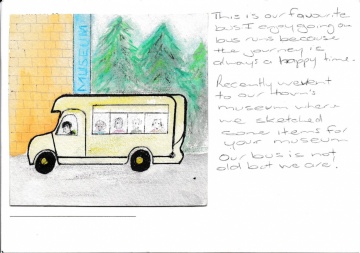 MUSEUM
This is our favourite
bus I enjoy going on
bus runs because
the journey is
always a happy time.
Recently we went
to our town's
museum where
we sketched
some items for
your museum
Our bus is not
old but we are.